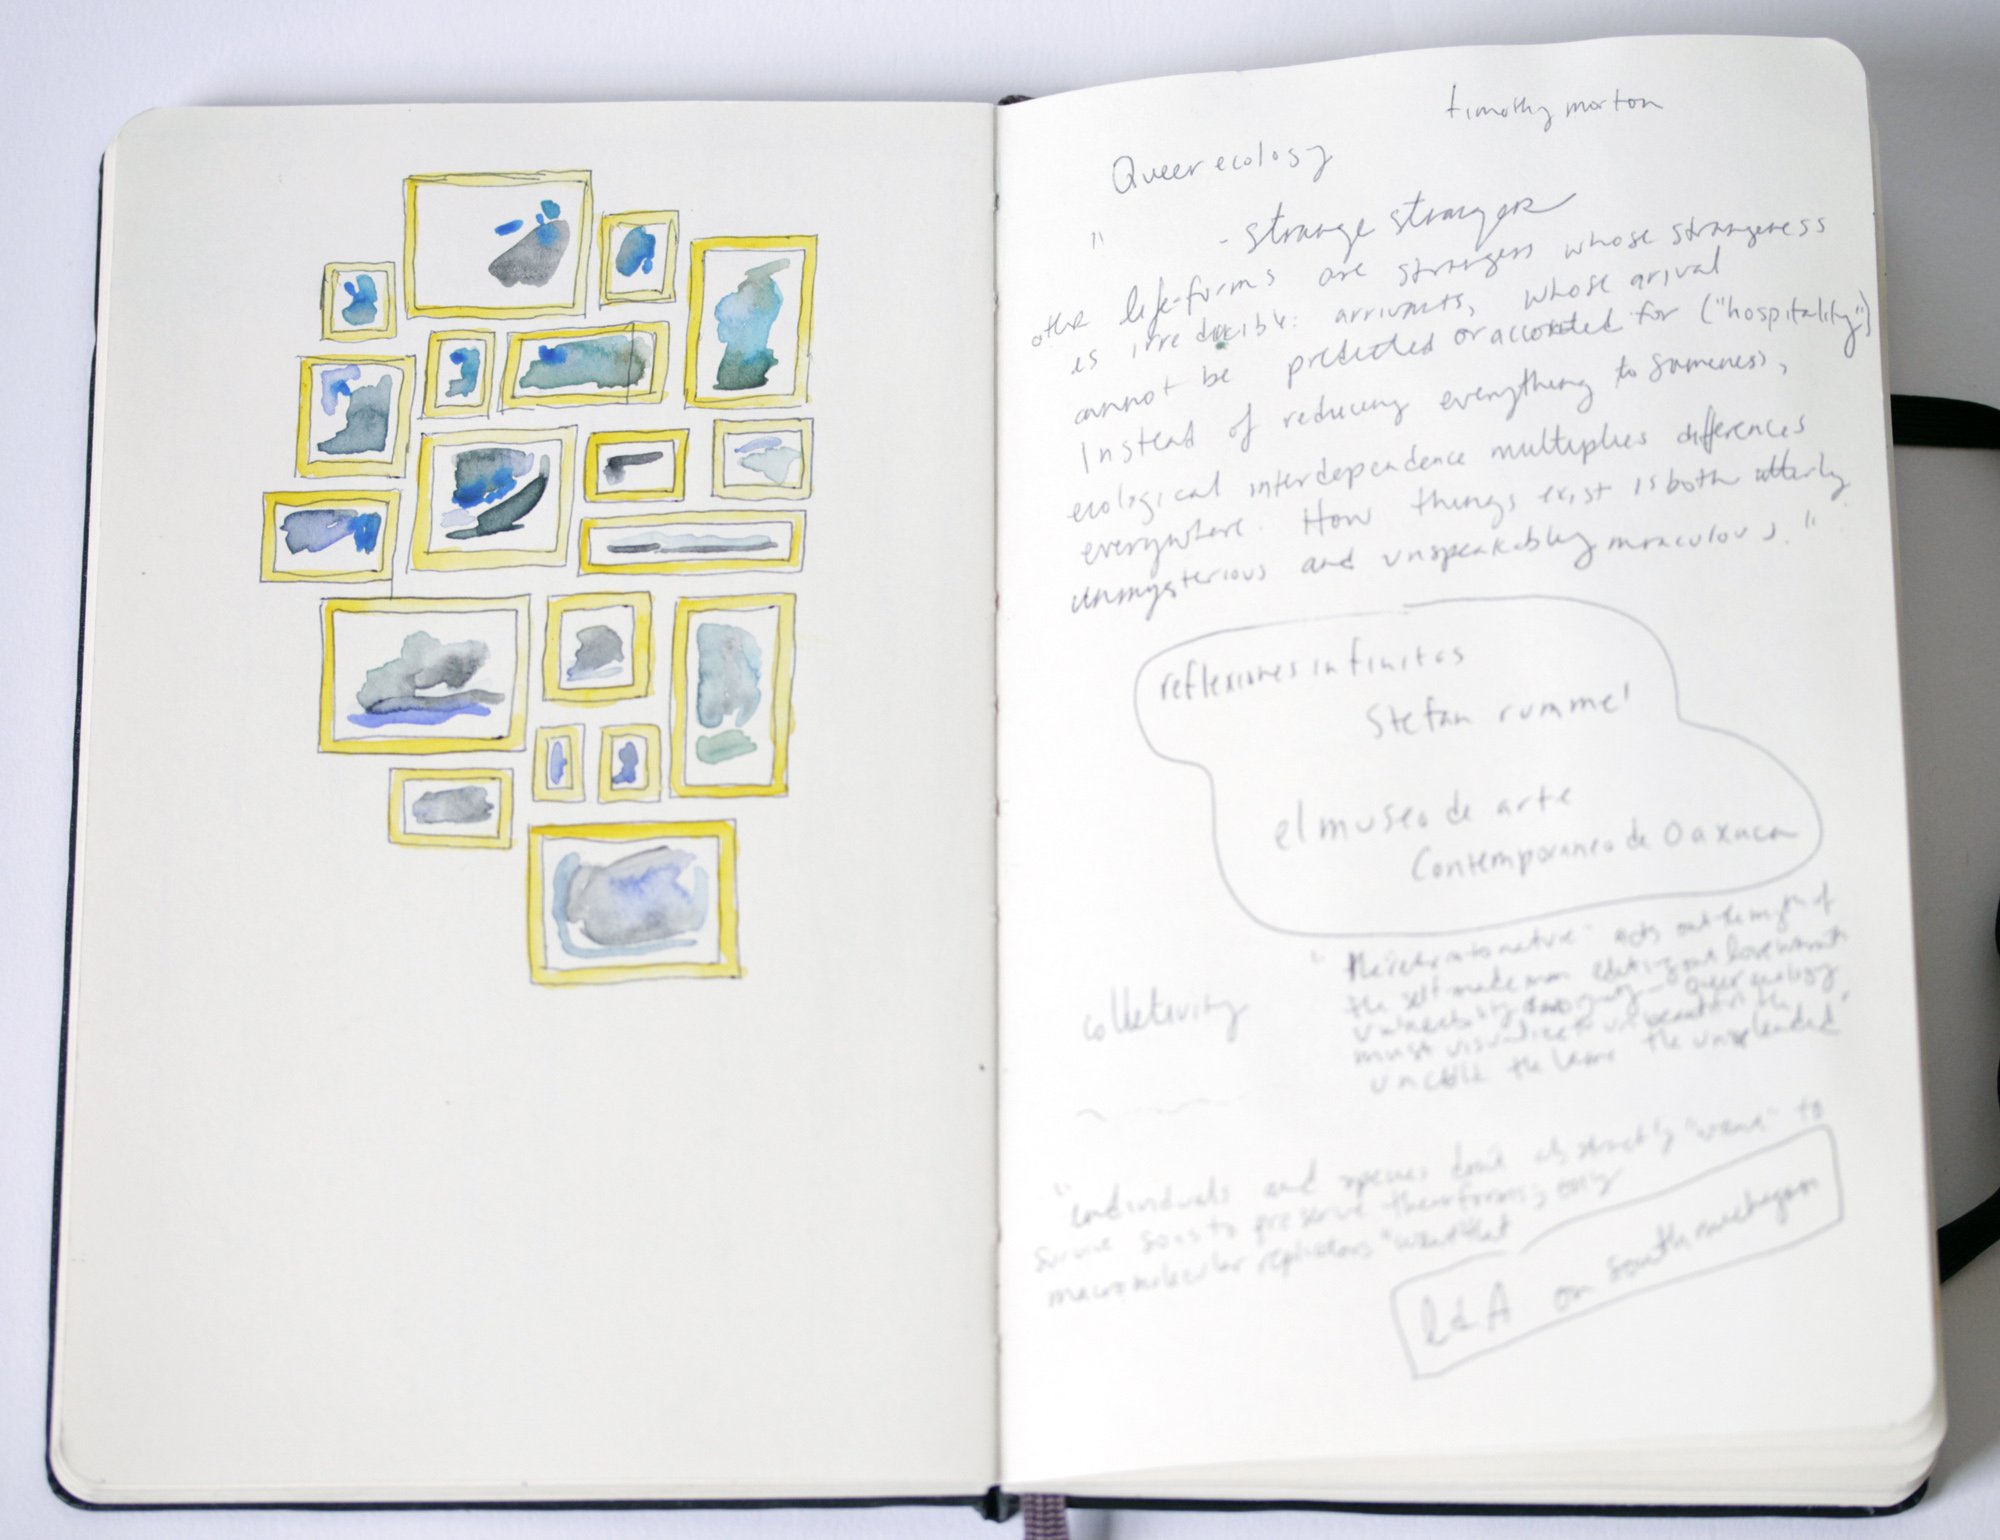 timothy morton
Queer ecology
" - strange stranger
other life-forms are strangers whose strangeness
is irreducible: arrivants, whose arival
cannot be predicted or accounted for ("hospitality")
Instead of reducing everything to sameness,
ecological interdependence multiplies differences
everywhere. How things exist is both utterly
unmysterious and unspeakably miraculous."
reflexiones infinitas
Stefan rummel
el museo de arte
Contemporaneo de Oaxaca
"the return to nature" acts out the myth of
the self-made man editing out love warmth
vulnerability and queer ecology
must visualize the unbeautiful the
uncold, the the unsplendid"
colletivity
"individuals and species don't abstractly "want" to
survive so as to preserve their forms; only
macromolecular replicators "want" that
on south michegan